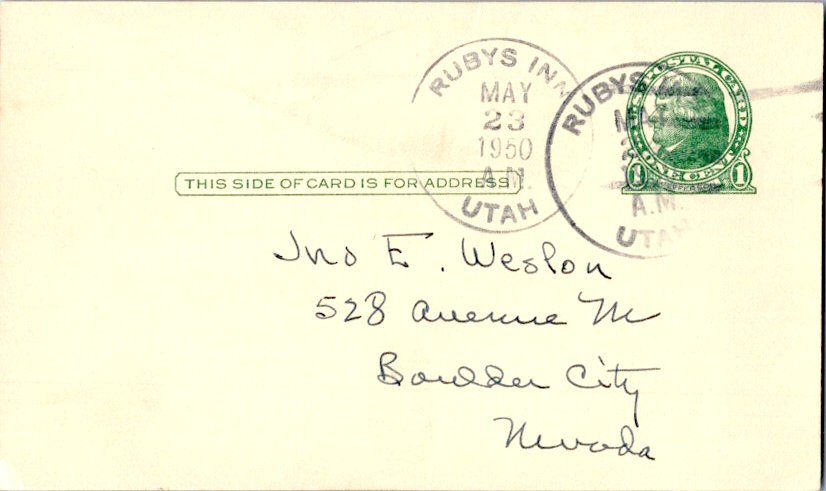 RUBYS INN
MAY
23
1950
A.M.
UTAH
RUBYS
A.M.
UTAH
U.S. POSTAL CARD
1 1
ONE CENT
THIS SIDE OF CARD IS FOR ADDRESS
Jno E. Weslon
528 Avenue M
Boulder City
Nevada